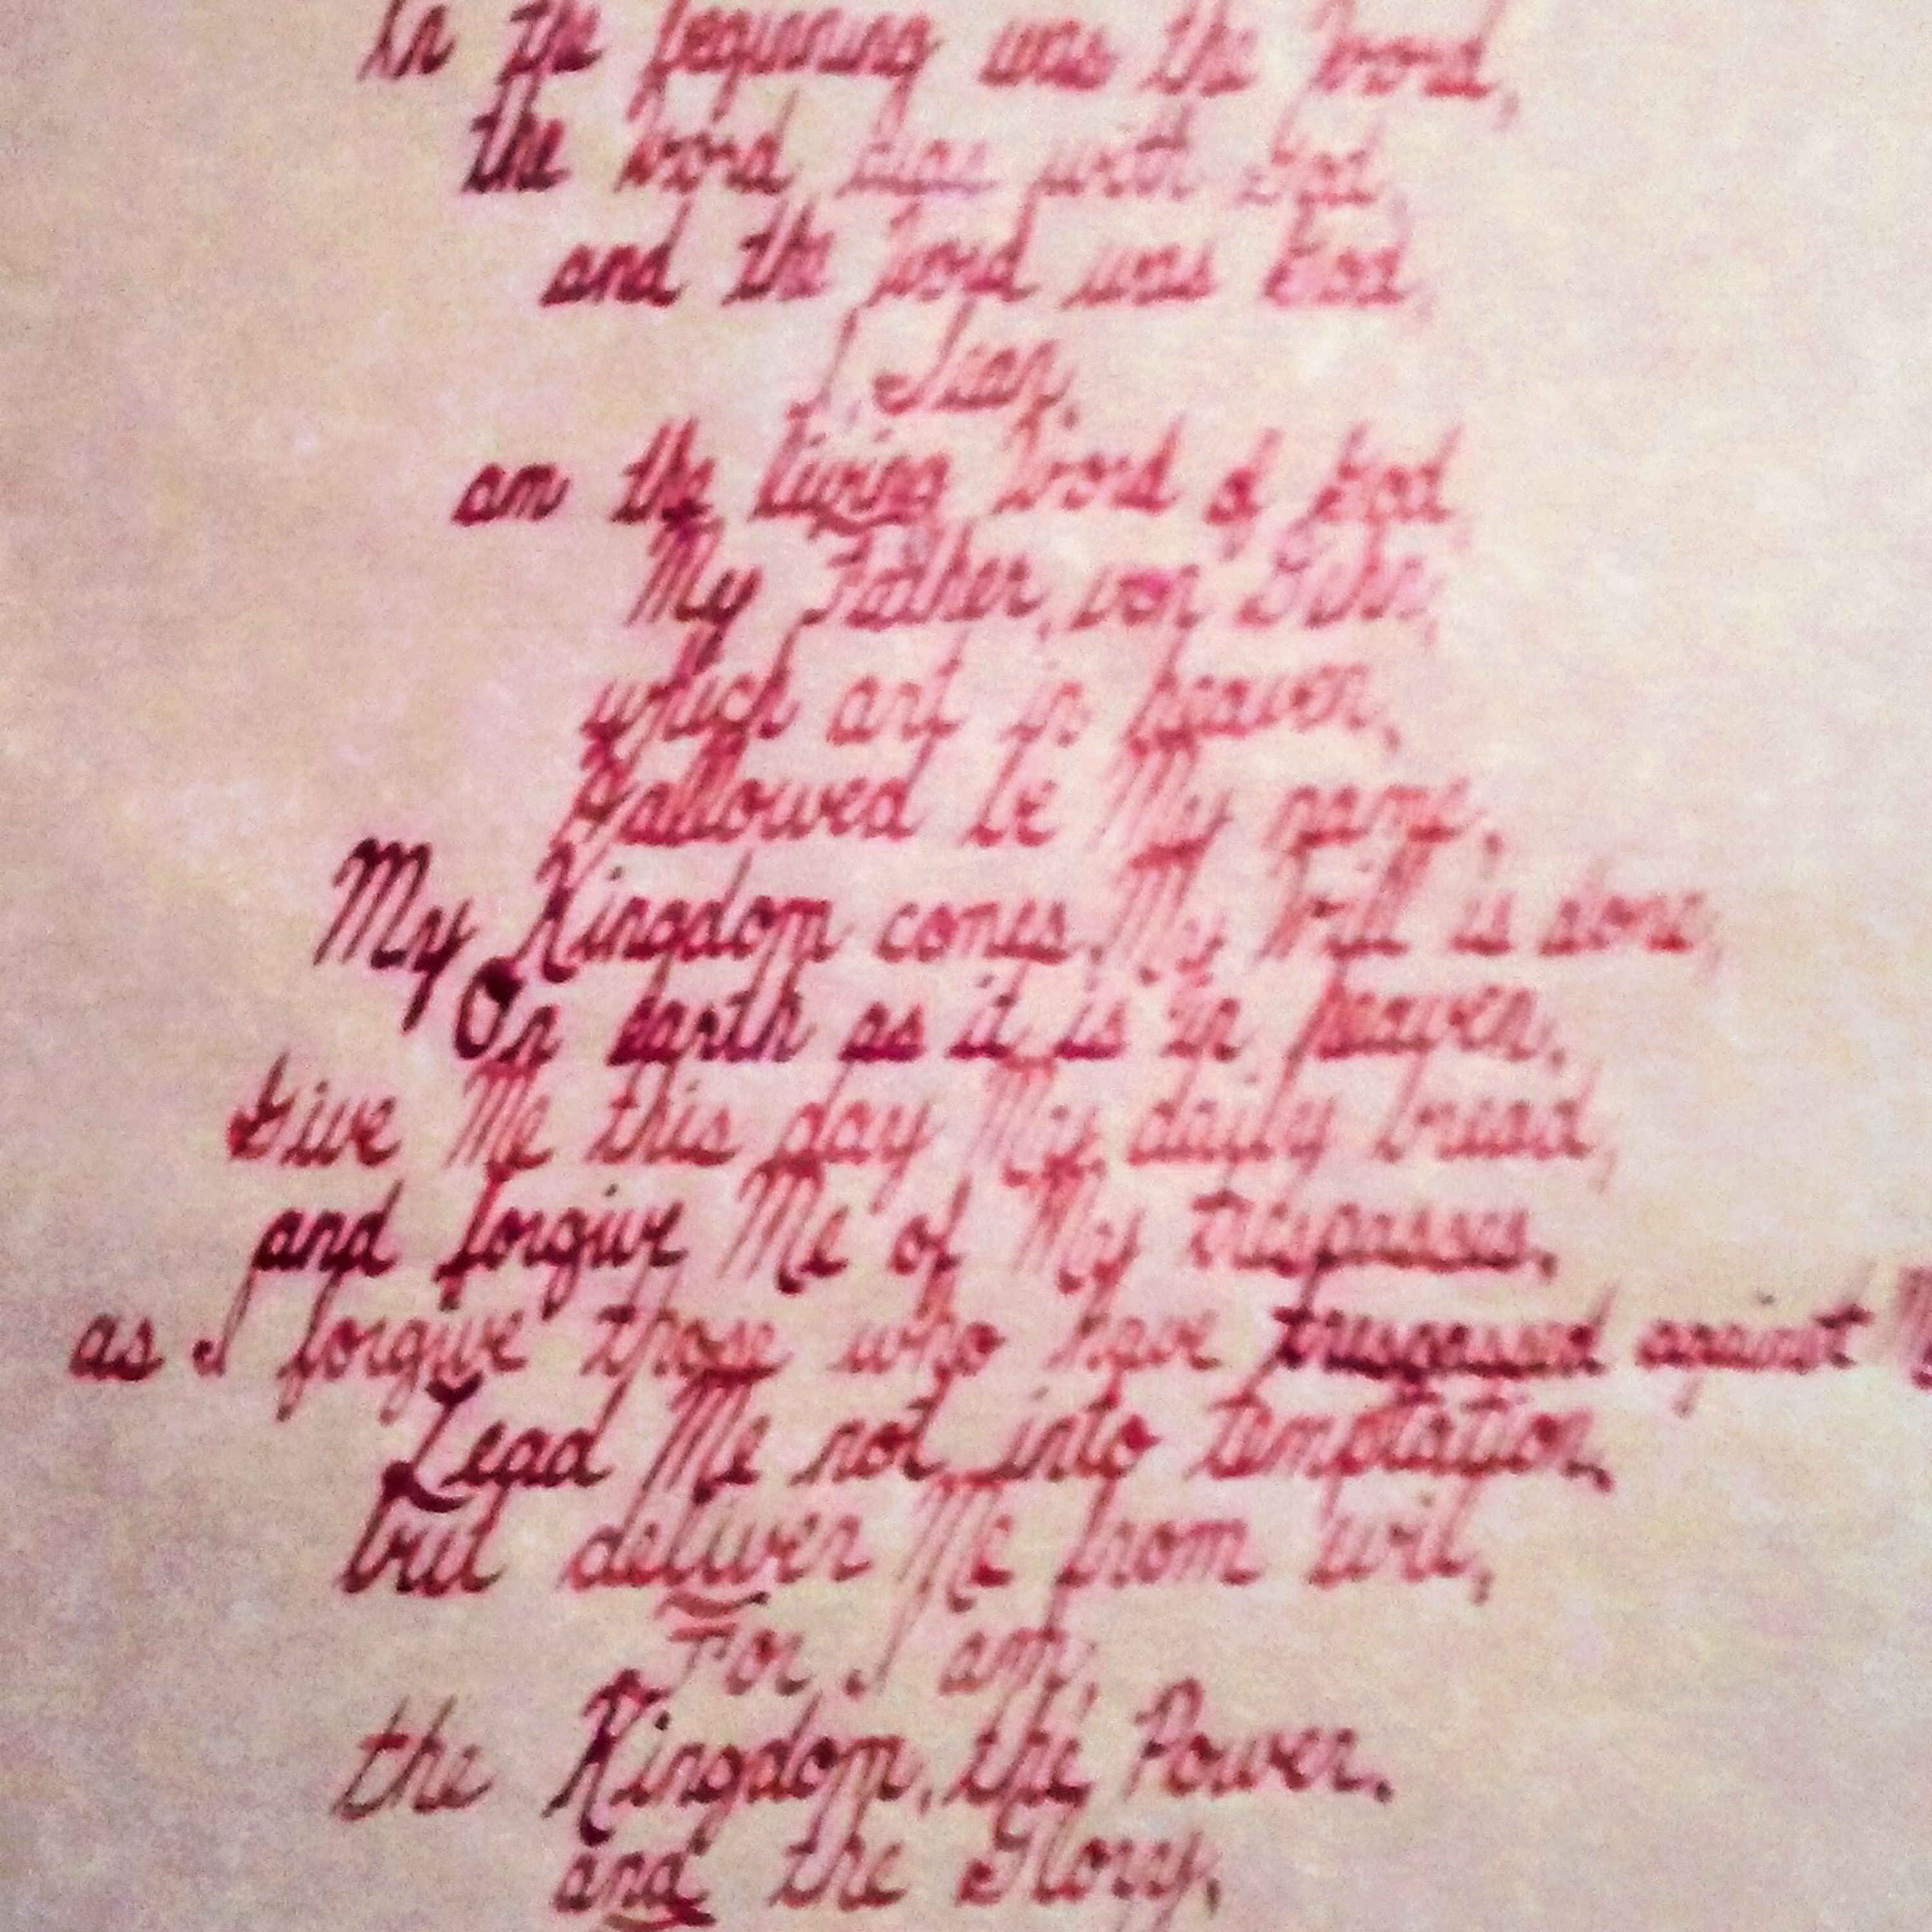 In the beginning was the Word,
the Word was with God,
and the Word was God,
I,
am the living Word of God,
My Father, von
which art in heaven,
Hallowed be My name,
My Kingdom comes, My Will is done,
On earth as it is in heaven.
Give Me this day My daily bread,
and forgive Me of My trespasses,
as I forgive those who have trespassed against
Lead Me not into temptation,
but deliver Me from evil,
For I am,
the Kingdom, the Power,
and the Glory,